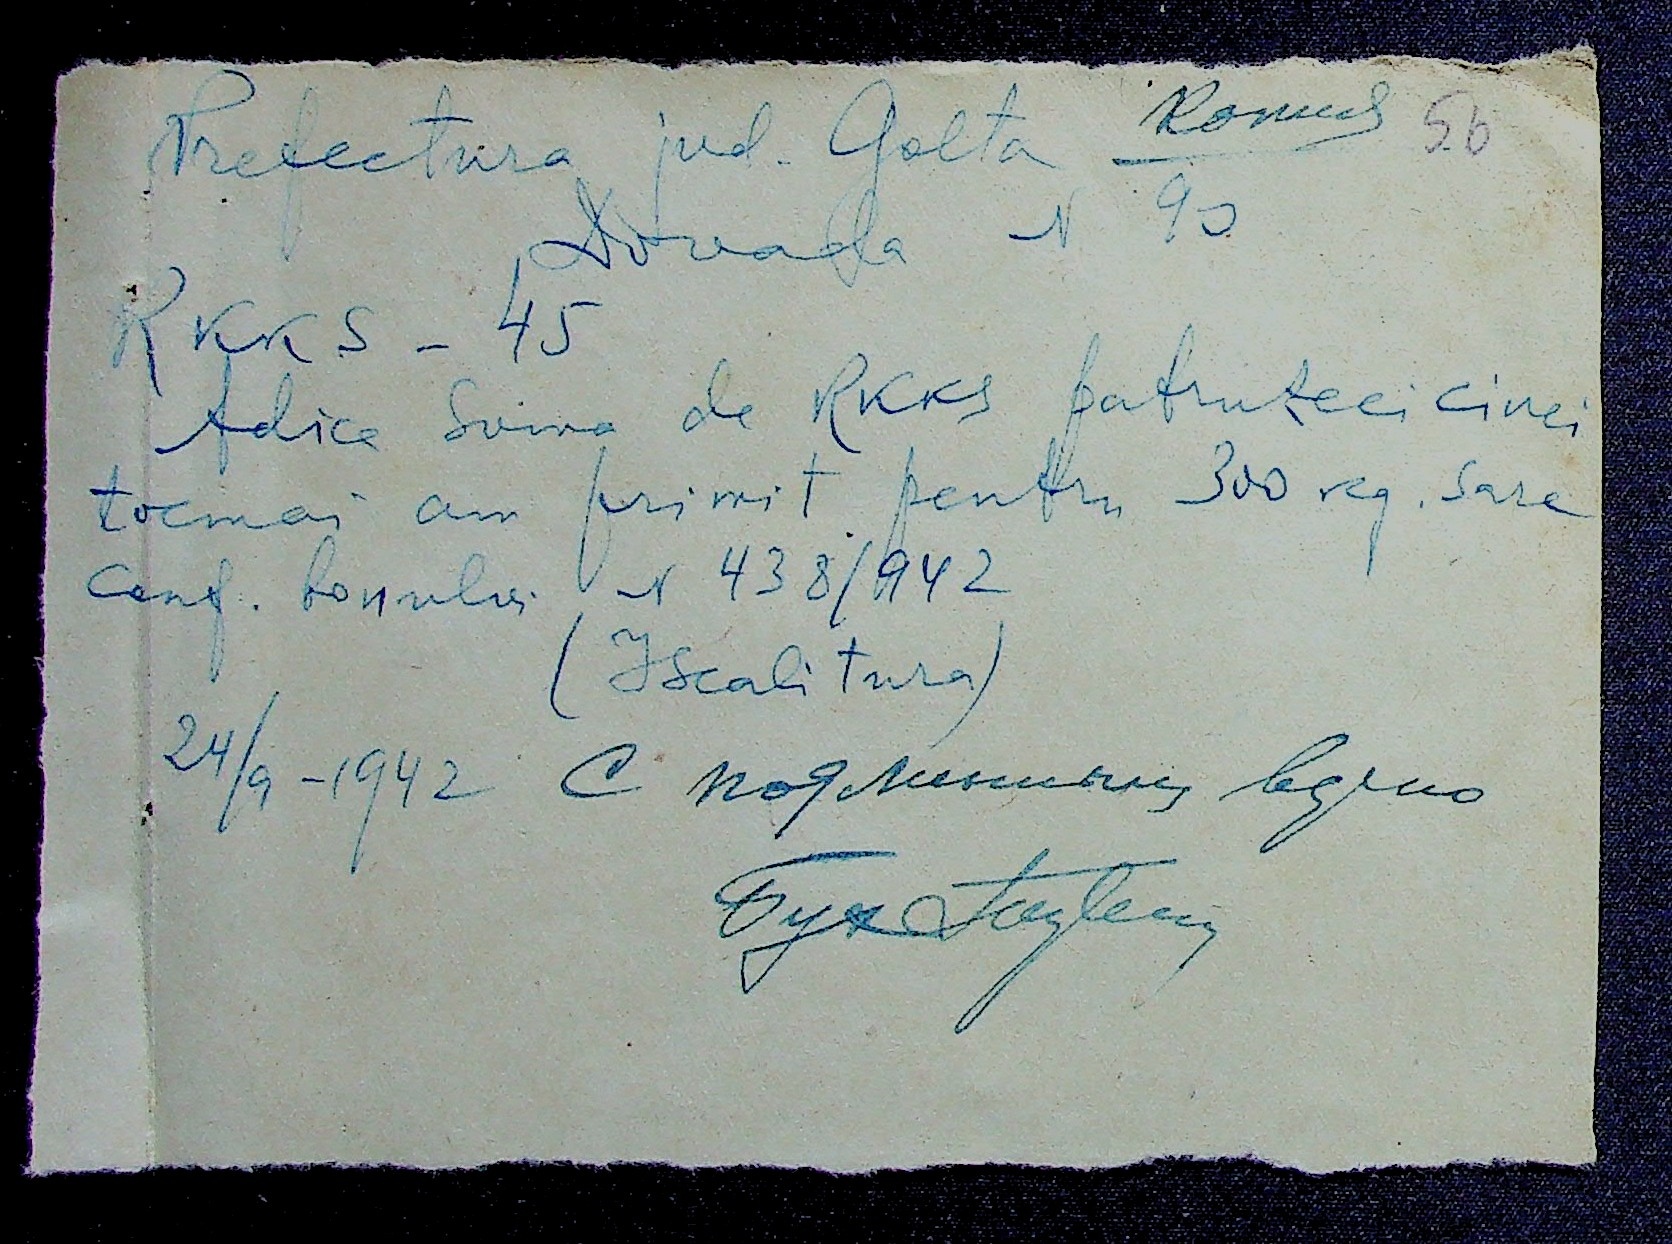 Prefectura jud. Golta Копия 56
Dovada N 90
RKKS - 45
Adica Suma de RKKS patruzeci cinci
tocmai am primit pentru 300 kg. Sare
conf. bonului N 438/942
(Iscalitura)
24/9 - 1942 С подлинным верно
Бух